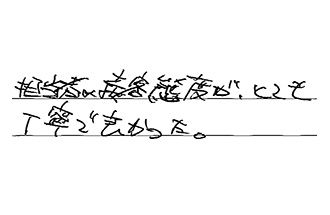 担当者の接客態度が、とても
丁寧で良かった。